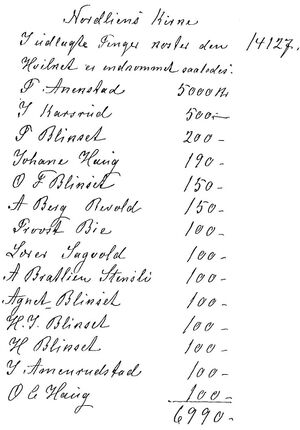 Nordliens Kirke
I udlagte Penger koster den 14127.
Hvilket er indkommet saaledes:
P. Anenstad 5000 Kr
I Karsrud 500.—
P Blinset 200 -
Johane Haug 190 -
O P Blinset 150 -
A Berg Revold 150 -
Provst Bie 100 -
Lærer Ingvold 100 -
A Bratlien Stensli 100 -
Agnet Blinset 100 -
H. I. Blinset 100 -
H Blinset 100 -
I. Amenrudstad 100 -
O C Haug 100 -
6990 -